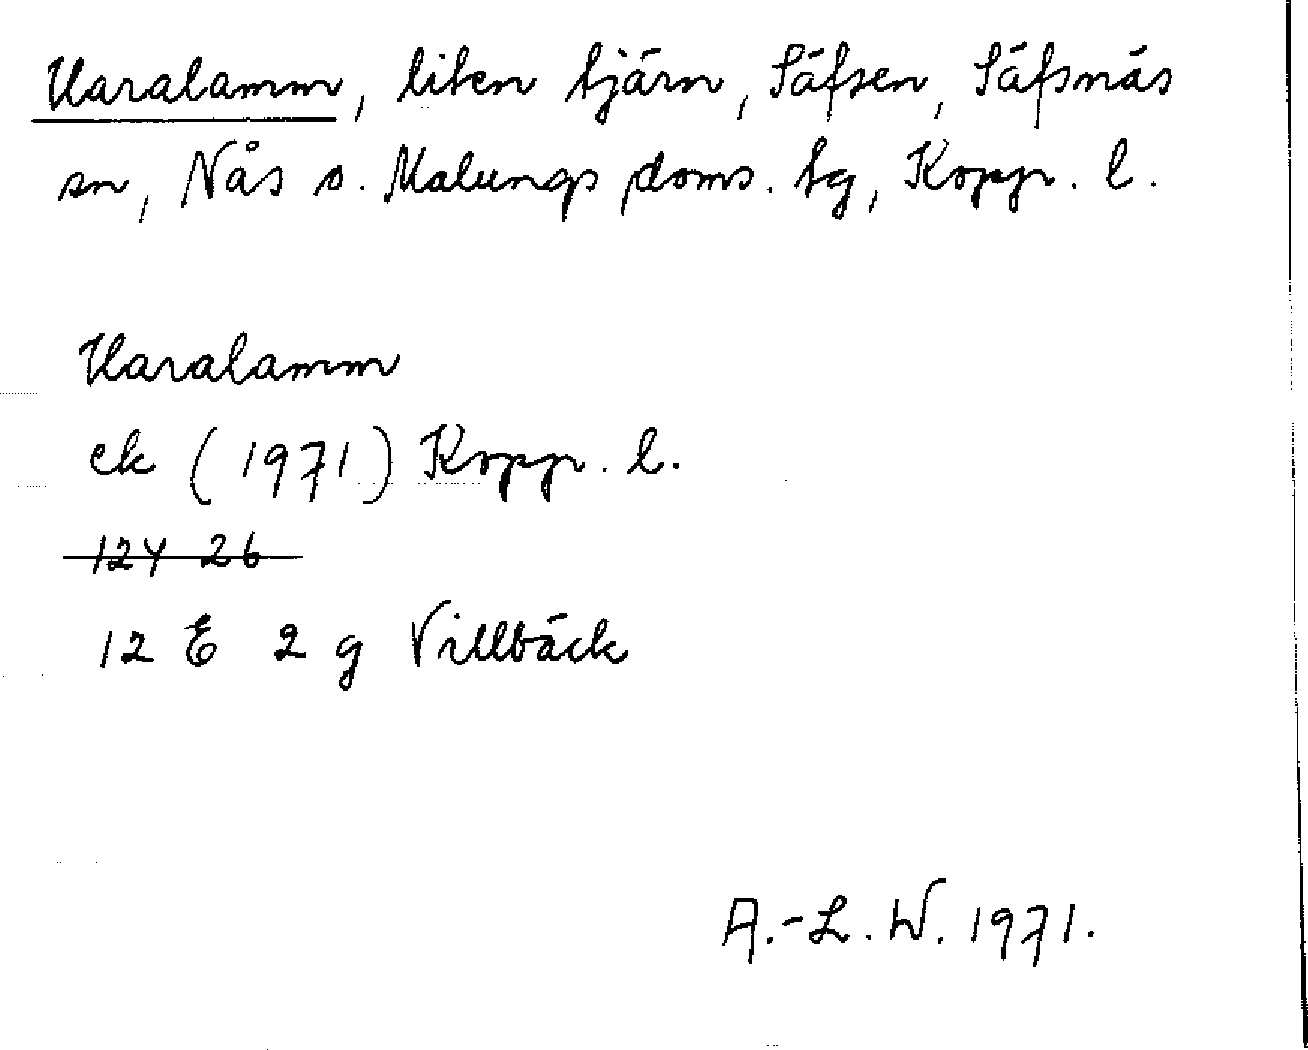 Varalamm, liten tjärn, Säfsen, Säfsnäs
sn, Nås o. Malungs doms. tg, Kopp. l.
Varalamm
ek (1971) Kopp. l.
12Y 26
12 E 2 g Villbäck
A.-L. W. 1971.